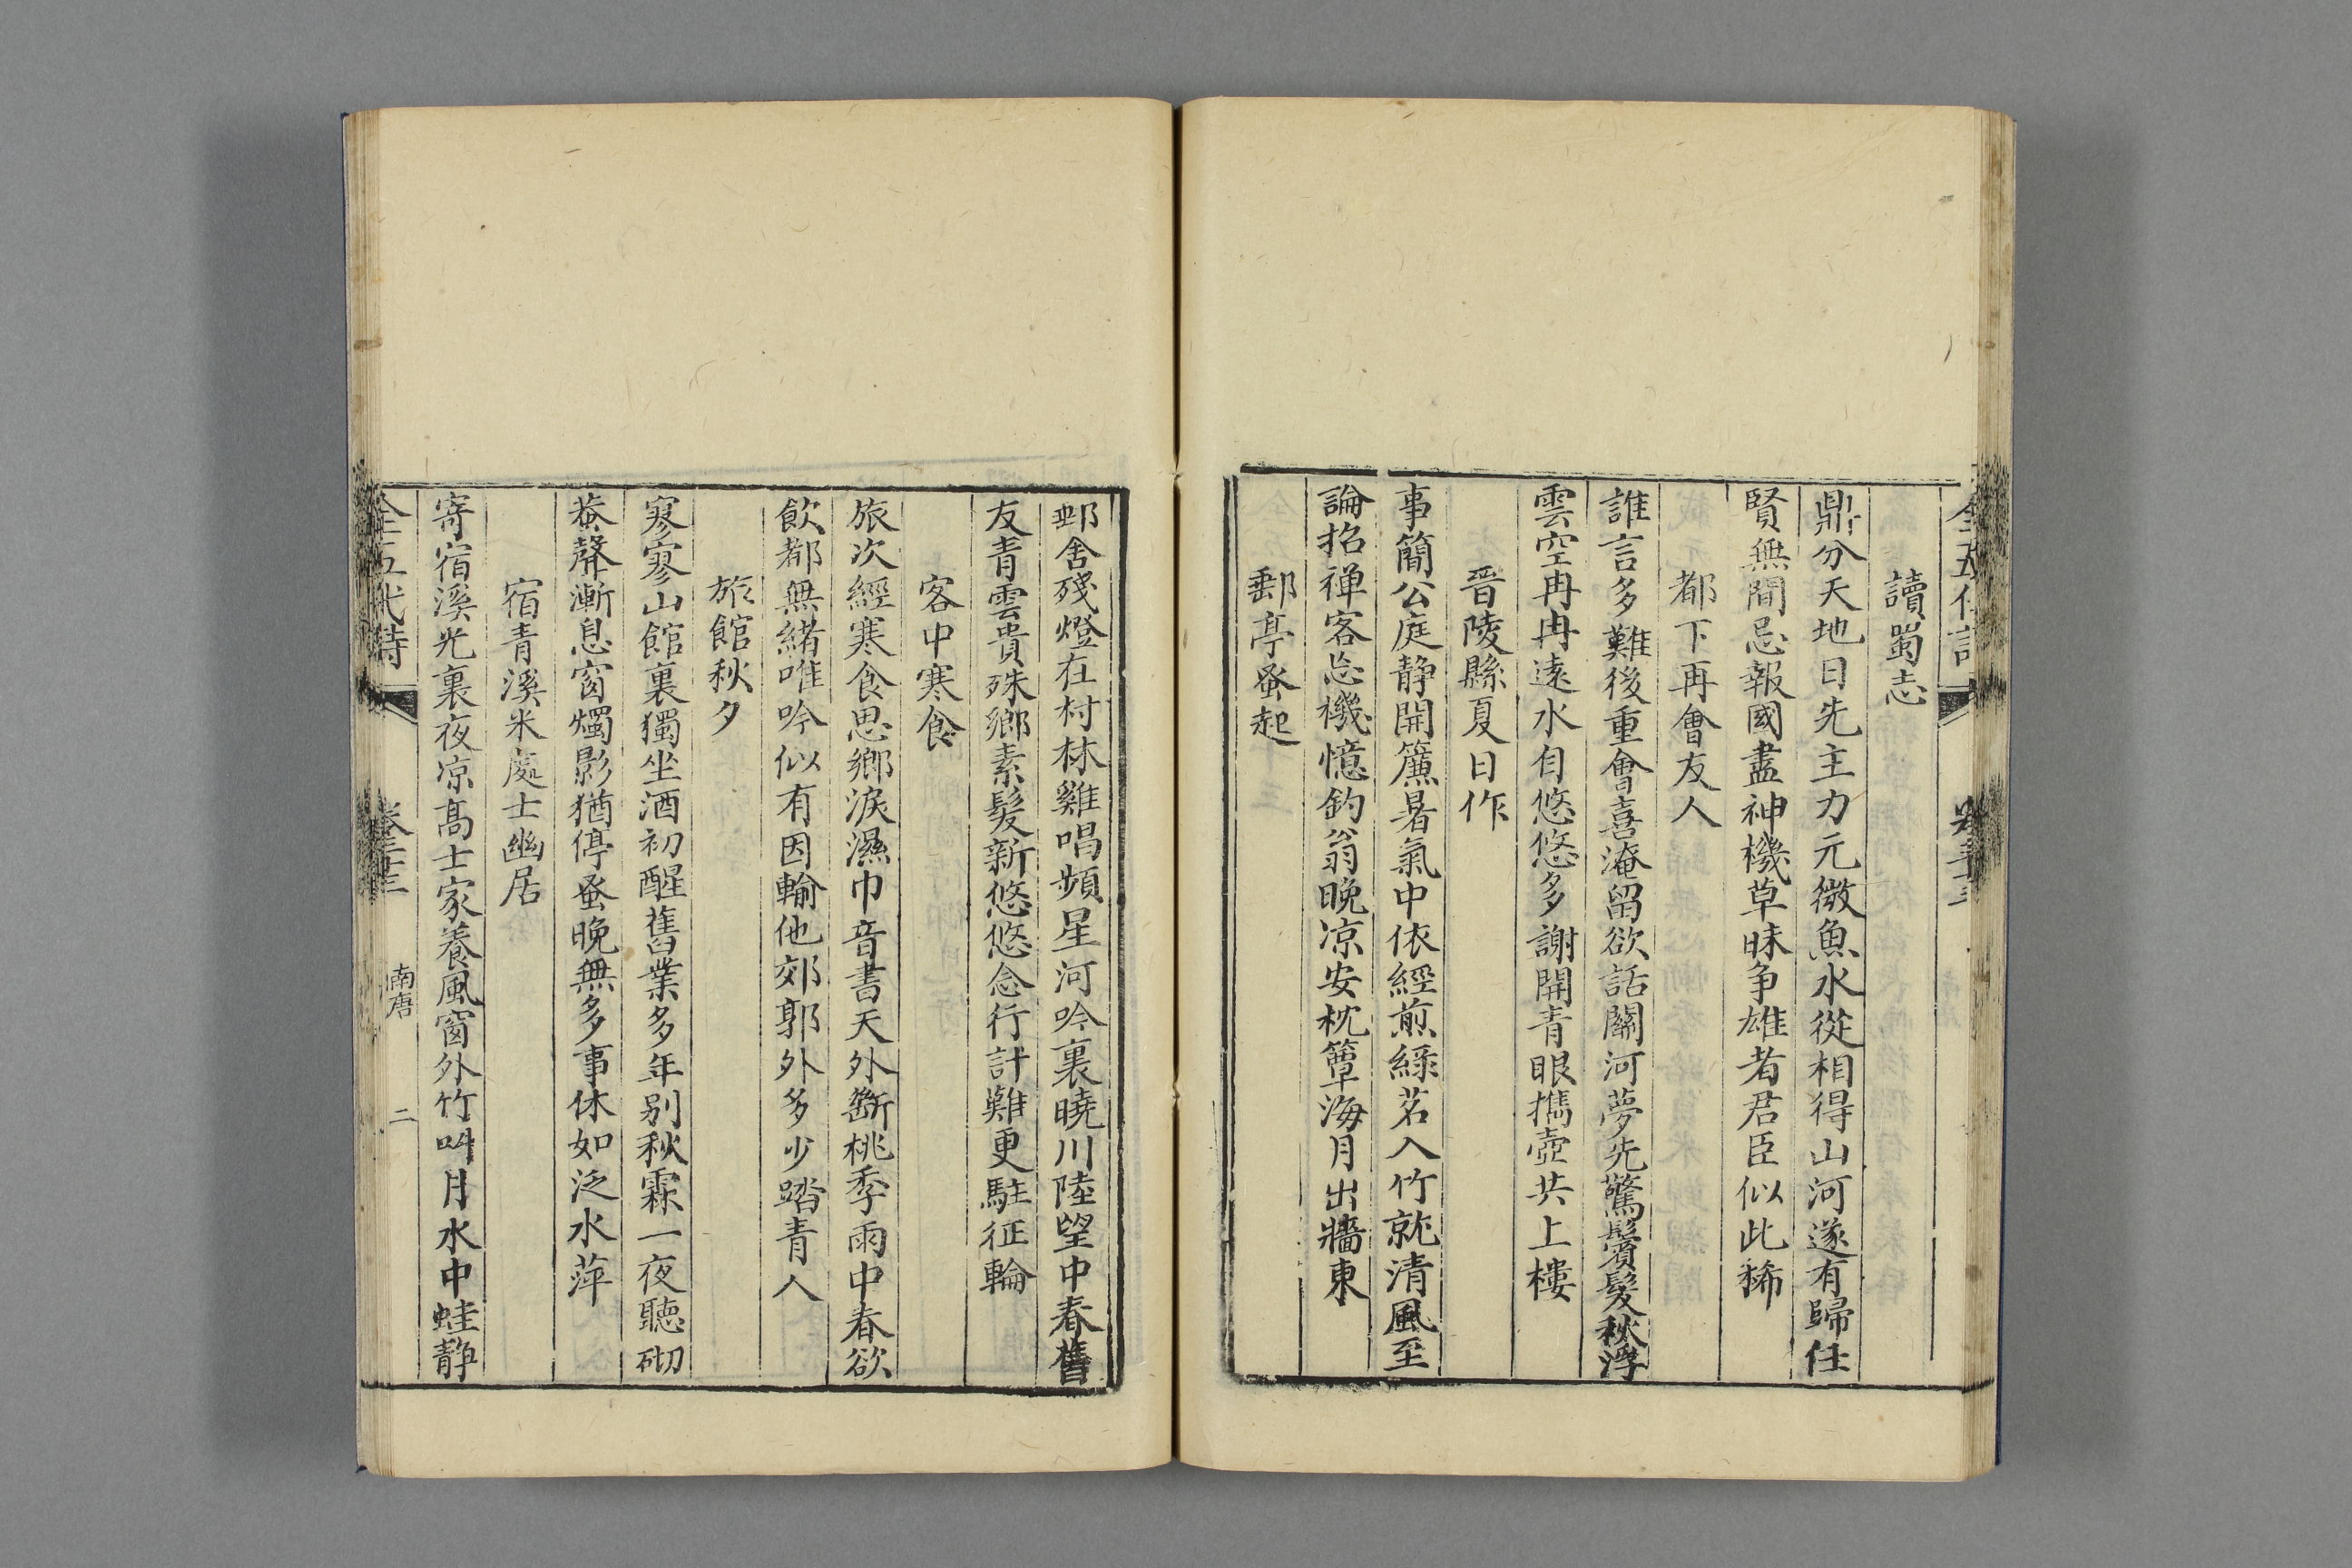 讀蜀志
鼎分天地日先主力元微魚水從相得山河遂有歸任
賢無間忌報國盡神機草昧争雄者君臣似此稀
都下再會友人
誰言多難後重會喜淹留欲話關河夢先驚鬢髮秋浮
雲空冉冉遠水自悠悠多謝開青眼攜壺共上樓
晉陵縣夏日作
事簡公庭静開簾暑氣中依經煎緑茗入竹就清風至
論招禅客忘機憶釣翁晚凉安枕簟海月出牆東
郵亭蚤起
郵舍殘燈在村林雞唱頻星河吟裏曉川陸望中春舊
友青雲貴殊鄉素髮新悠悠念行計難更駐征輪
客中寒食
旅次經寒食思鄉淚濕巾音書天外斷桃李雨中春欲
飲都無緒唯吟似有因輸他郊郭外多少踏青人
旅館秋夕
寥寥山館裏獨坐酒初醒舊業多年别秋霖一夜聽砌
蛬聲漸息窗燭影猶停蚤晚無多事休如泛水萍
宿青溪米處士幽居
寄宿溪光裏夜凉高士家養風窗外竹叫月水中蛙静
全五代詩 卷三十三 南唐 二